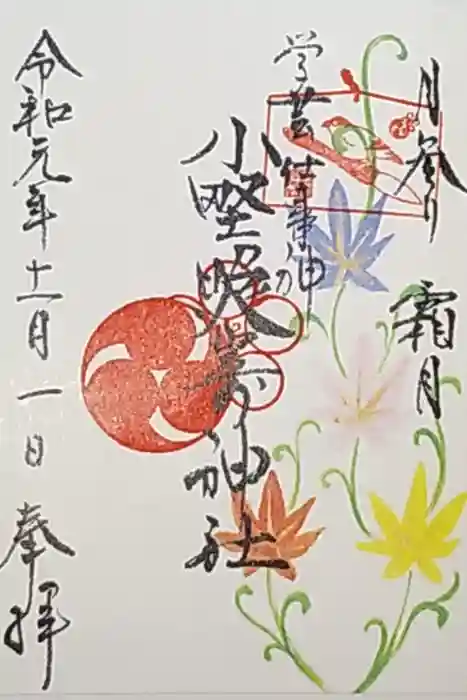 月参り 霜月
学芸仕事の神
小野照崎神社
令和元年十一月一日 奉拝